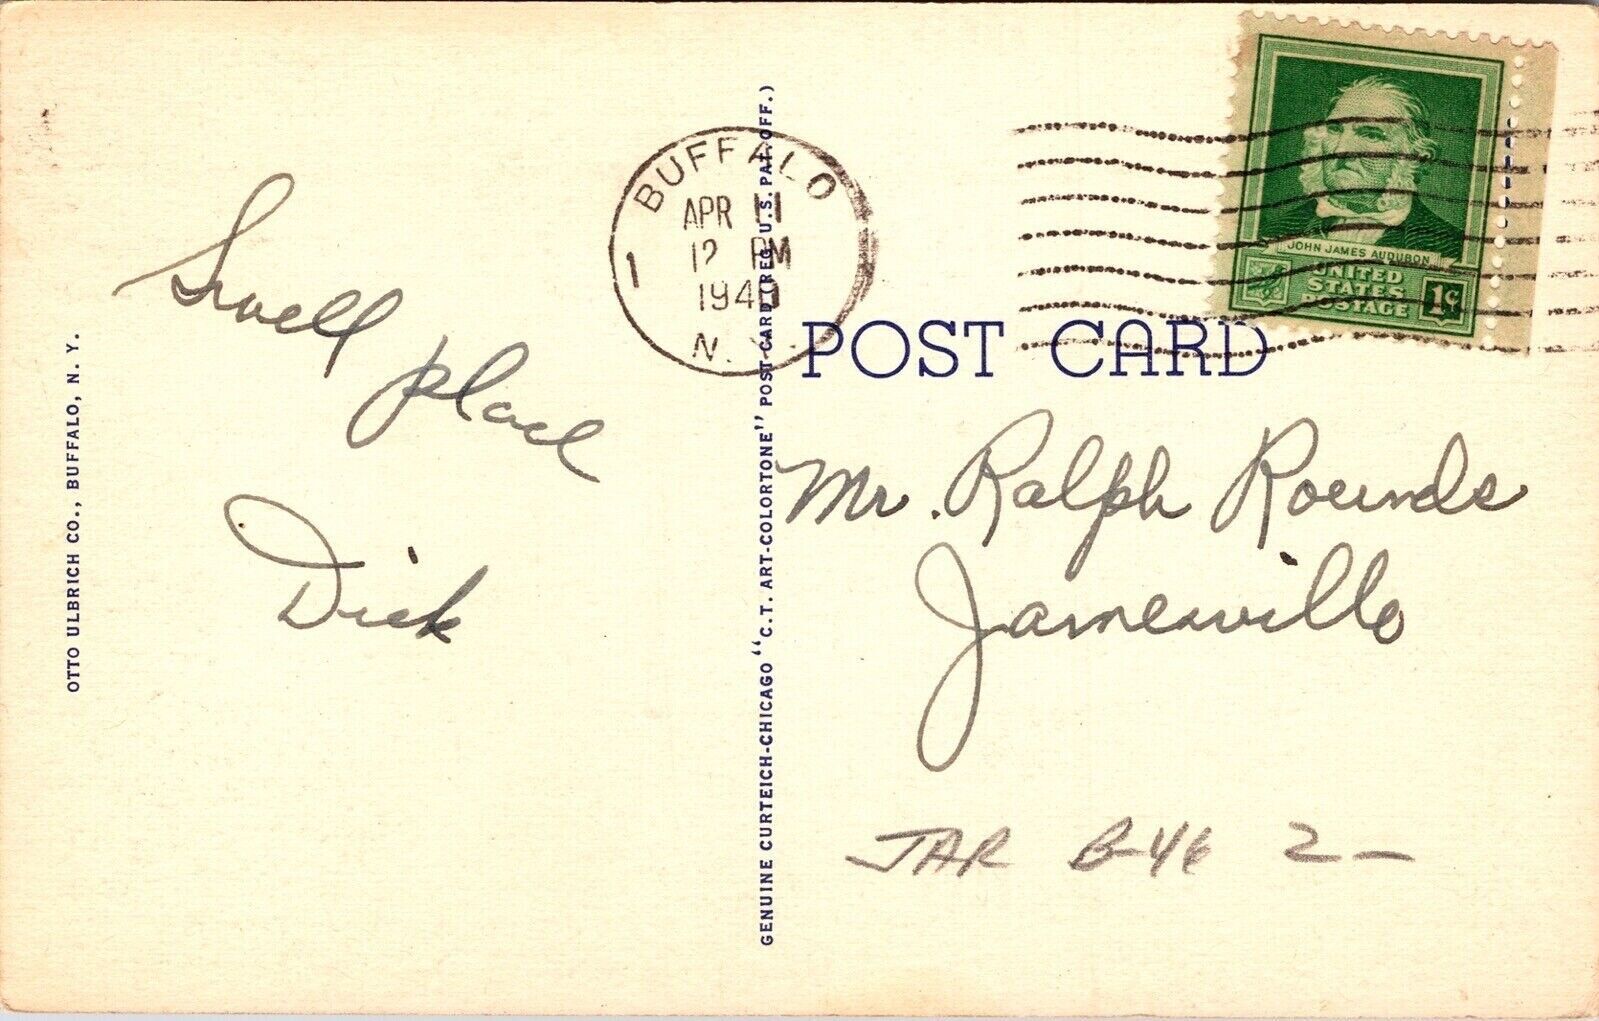 OTTO ULBRICH CO., BUFFALO, N. Y.
Swell place
Dick
GENUINE CURTEICH-CHICAGO "C.T. ART-COLORTONE" POST CARD (REG. U.S. PAT. OFF.)
BUFFALO
APR 11
12 PM
1940
N. Y.
1
JOHN JAMES AUDUBON
UNITED
STATES
POSTAGE
1¢
POST CARD
Mr. Ralph Rounds
Jamesville
JAR B-46 2-